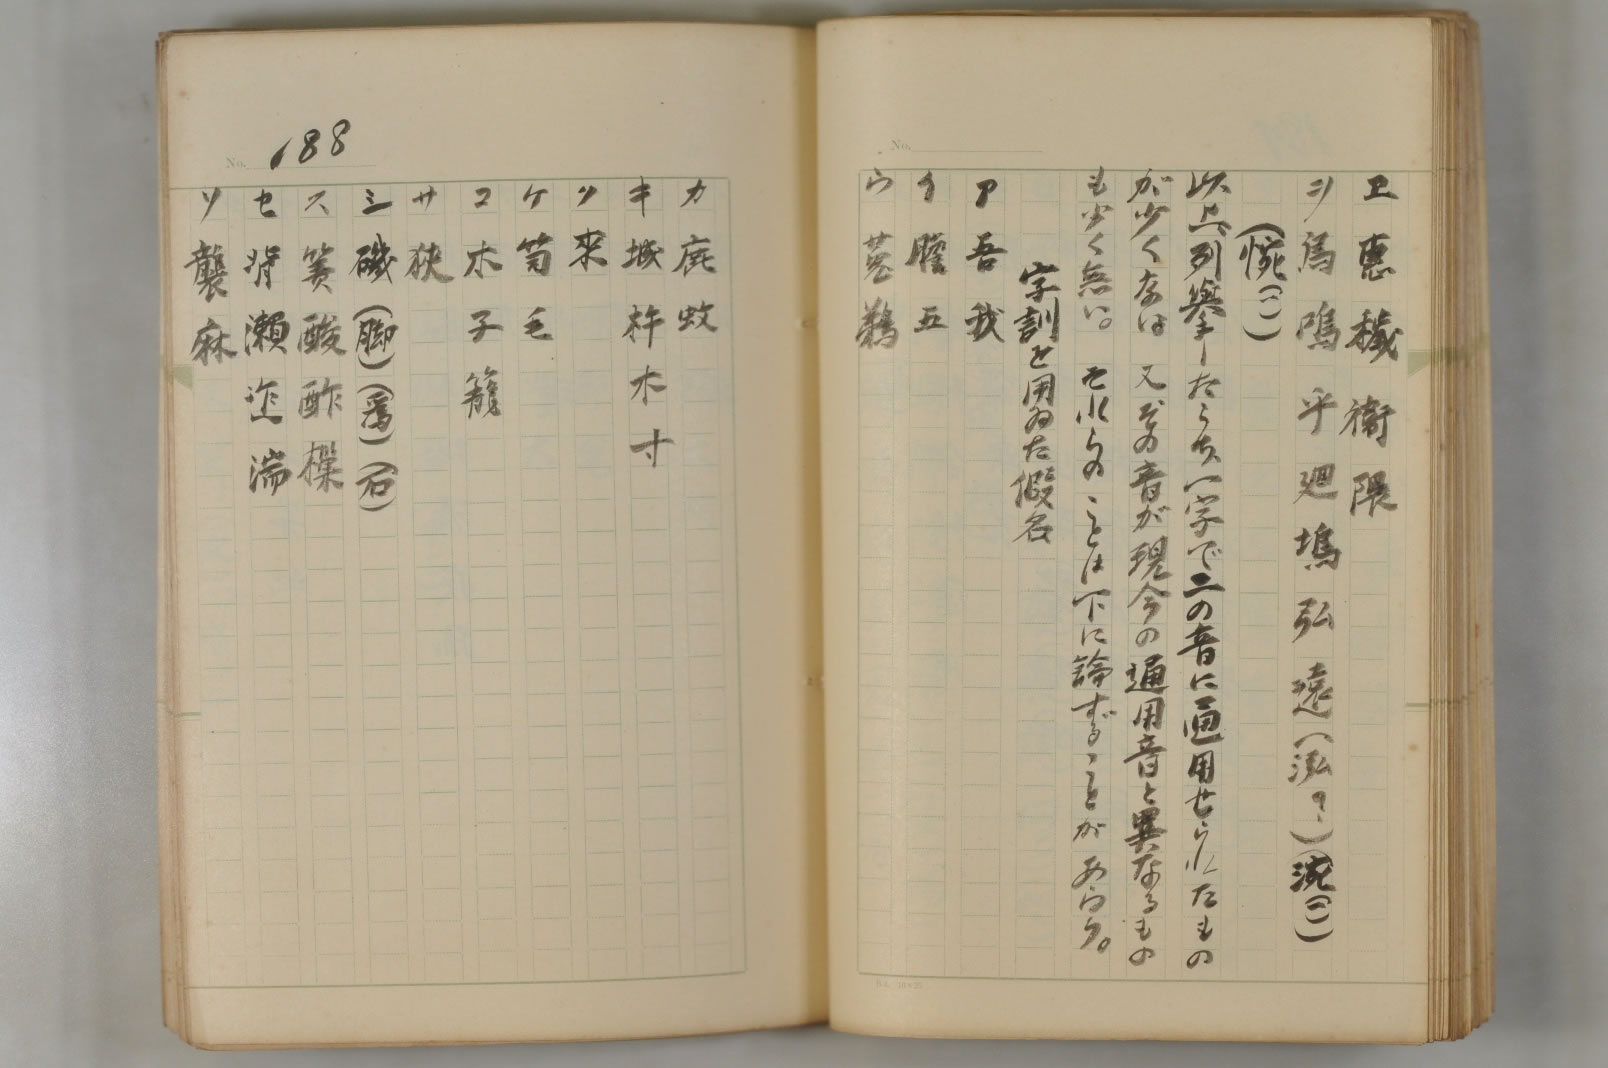 ヱ 惠 穢 衞 隈
ヲ 烏 嗚 乎 廻 塢 弘 遠 (泓?) (涴(一))
(惋(一))
以上列擧したうち一字で二の音に通用せられたもの
が少くない 又その音が現今の通用音と異なるもの
も少く無い。それらのことは下に論ずることがあらう。
字訓を用ゐた假名
ア 吾 我
イ 膽 五
ウ 菟 鵜
No. 188
カ 鹿 蚊
キ 城 杵 木 寸
ク 來
ケ 笥 毛
コ 木 子 籠
サ 狹
シ 磯 (脚) (爲) (石)
ス 簀 酸 酢 樔
セ 背 瀬 湍
ソ 襲 麻